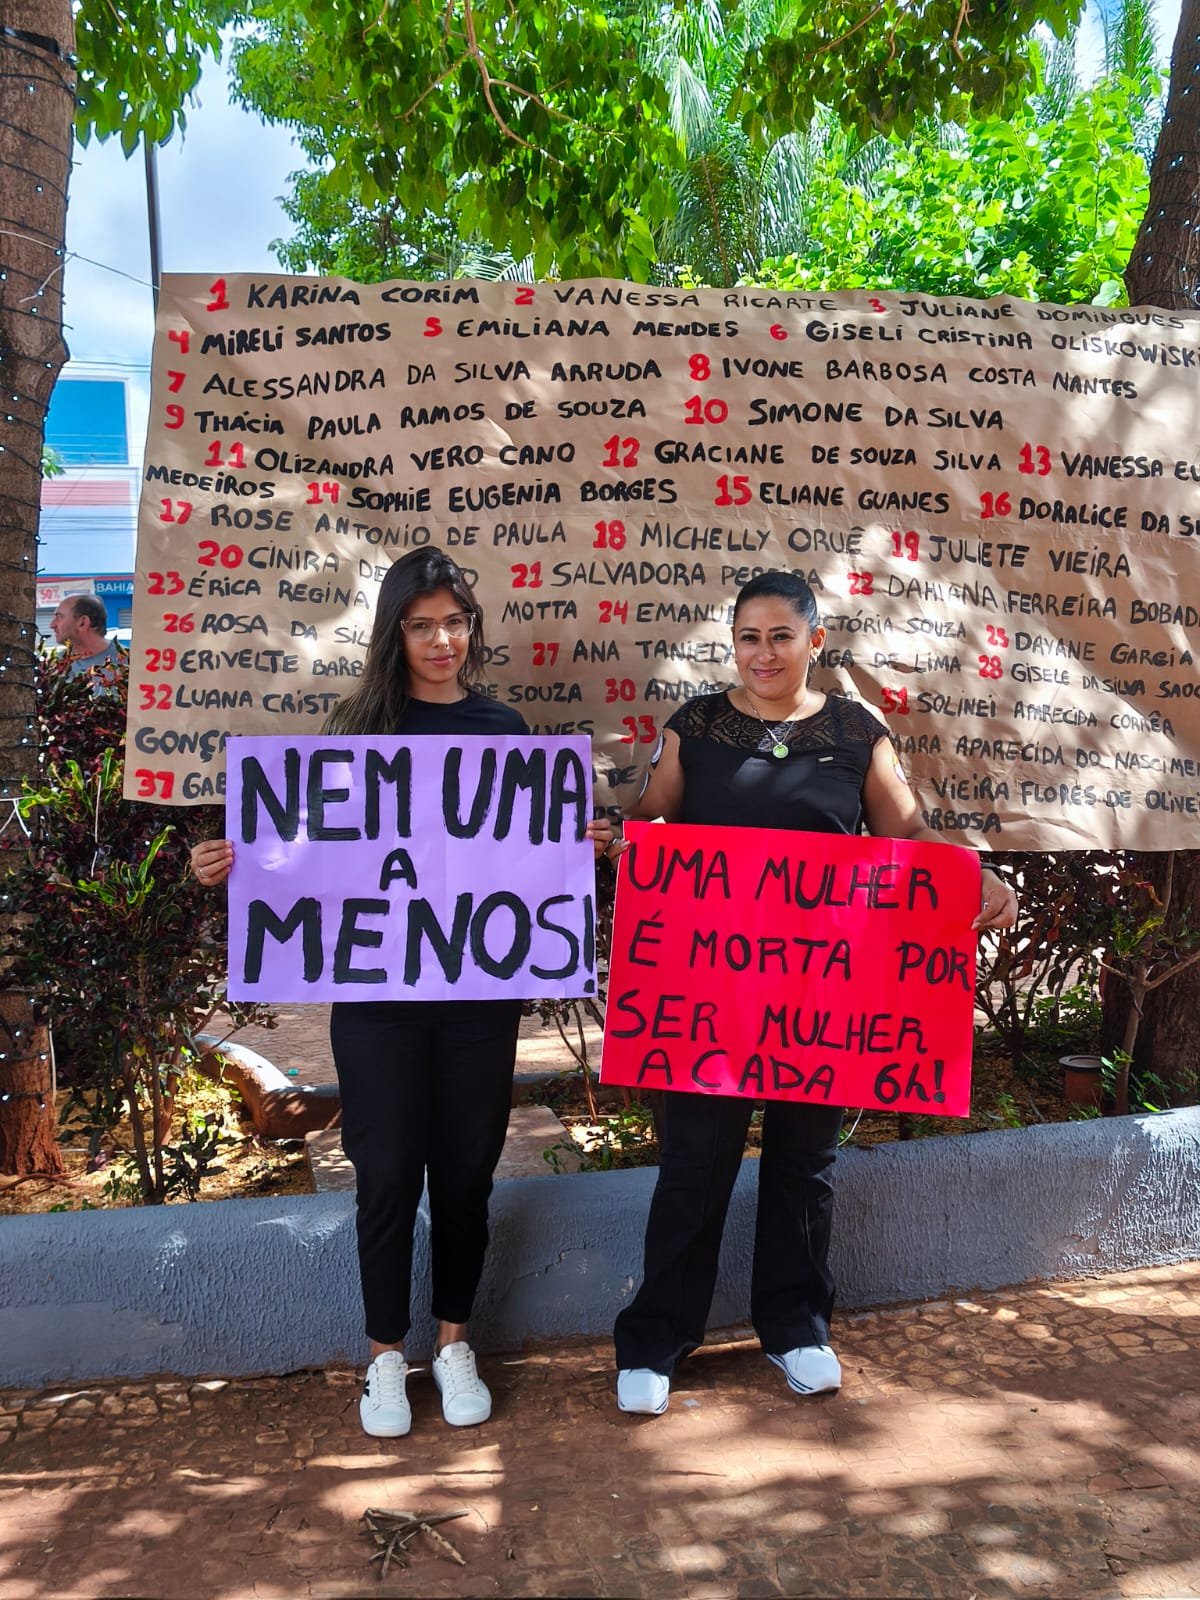 1 KARINA CORIM 2 VANESSA RICARTE 3 JULIANE DOMINGUES
4 MIRELI SANTOS 5 EMILIANA MENDES 6 GISELI CRISTINA OLISKOWISKI
7 ALESSANDRA DA SILVA ARRUDA 8 IVONE BARBOSA COSTA NANTES
9 THÁCIA PAULA RAMOS DE SOUZA 10 SIMONE DA SILVA
11 OLIZANDRA VERO CANO 12 GRACIANE DE SOUZA SILVA 13 VANESSA
MEDEIROS 14 SOPHIE EUGENIA BORGES 15 ELIANE GUANES 16 DORALICE DA
17 ROSE ANTONIO DE PAULA 18 MICHELLY ORUÊ 19 JULIETE VIEIRA
20 CINIRA 21 SALVADORA PEREIRA 22 DAHIANA FERREIRA
23 ÉRICA REGINA MOTTA 24 SOUZA 25 DAYANE GARCIA
26 ROSA DA 27 ANA DE LIMA 28 GISELE DA SILVA
29 ERIVELTE 30 31 SOLINEI APARECIDA CORRÊA
32 LUANA DE SOUZA 33 APARECIDA DO
37 DE VIEIRA FLORES DE
NEM UMA
A
MENOS!
UMA MULHER
É MORTA POR
SER MULHER
A CADA 6h!
50%
BAHIA